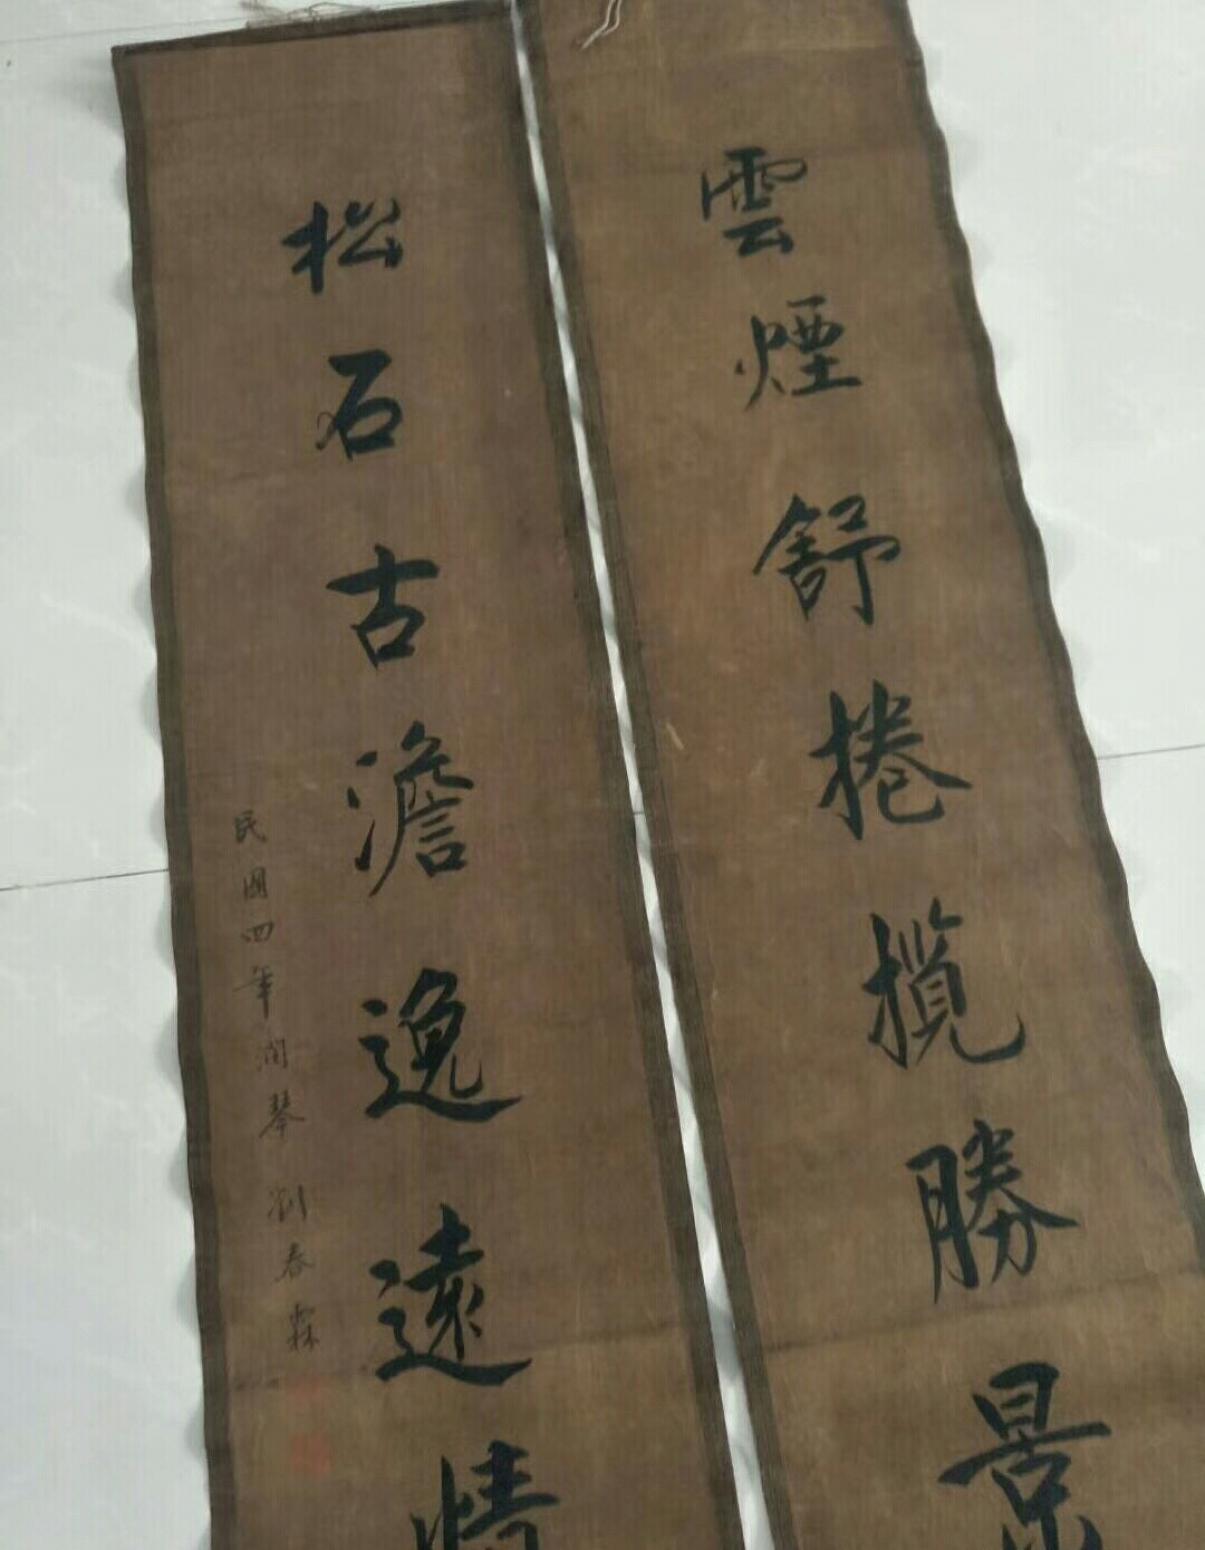 雲煙舒捲攬勝景
松石古澹逸遠情
民國四年潤琴劉春霖